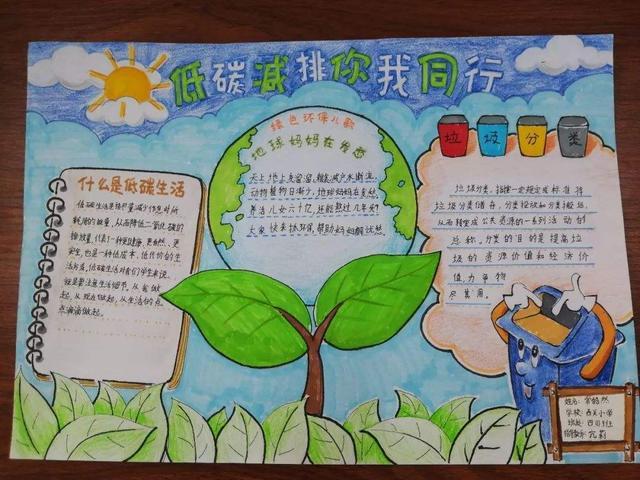 低碳减排你我同行
绿色环保儿歌
地球妈妈在发愁
天上地上臭溜溜,植被减少水断流,
动植物日渐少,地球妈妈在发愁,
养活儿女六十亿,还能熬过几年头?
大家快来搞环保,帮助妈妈解忧愁。
什么是低碳生活
低碳生活是指尽量减少作息时所
耗用的能量,从而降低二氧化碳的
排放量,代表了一种更健康、更自然、更
安全,也是一种低成本、低代价的生
活方式,低碳生活对我们学生来说,
就是要注意生活细节,从我做
起,从现在做起,从生活的点
点滴滴做起。
垃圾分类
垃圾分类,指按一定规定或标准将
垃圾分类储存、分类投放和分类搬运,
从而转变成公共资源的一系列活动的
总称,分类的目的是提高垃
圾的资源价值和经济价
值,力争物
尽其用。
姓名:
学校:西关小学
班级:四(1)班